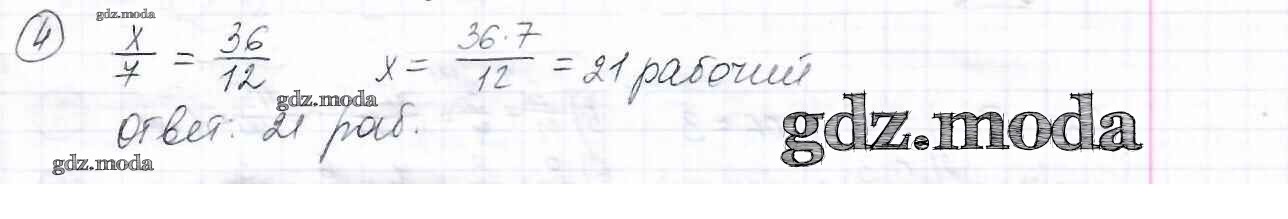 gdz.moda
4 x/7 = 36/12 x = 36·7/12 = 21 рабочий
gdz.moda
Ответ: 21 раб.
gdz.moda
gdz.moda